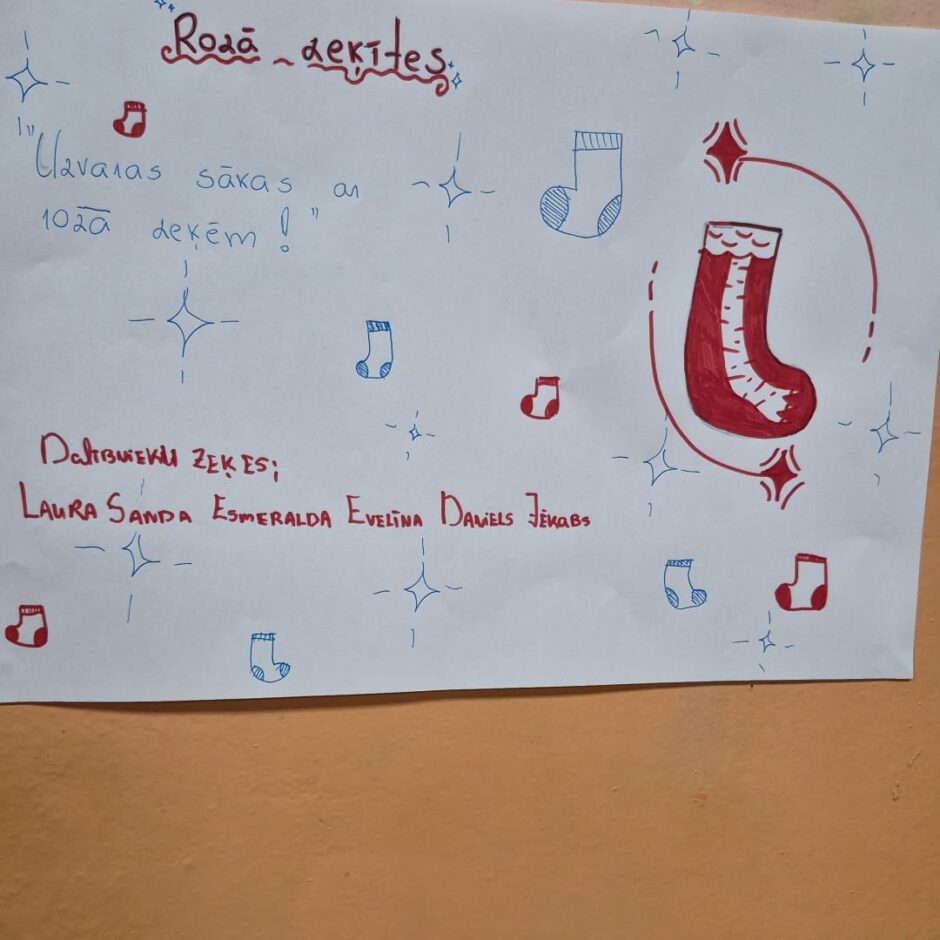 Rozā zeķītes
"Uzvaras sākas ar
rozā zeķēm!"
DALĪBNIEKU ZEĶES;
LAURA SANDA ESMERALDA EVELĪNA DANIELS JĒKABS